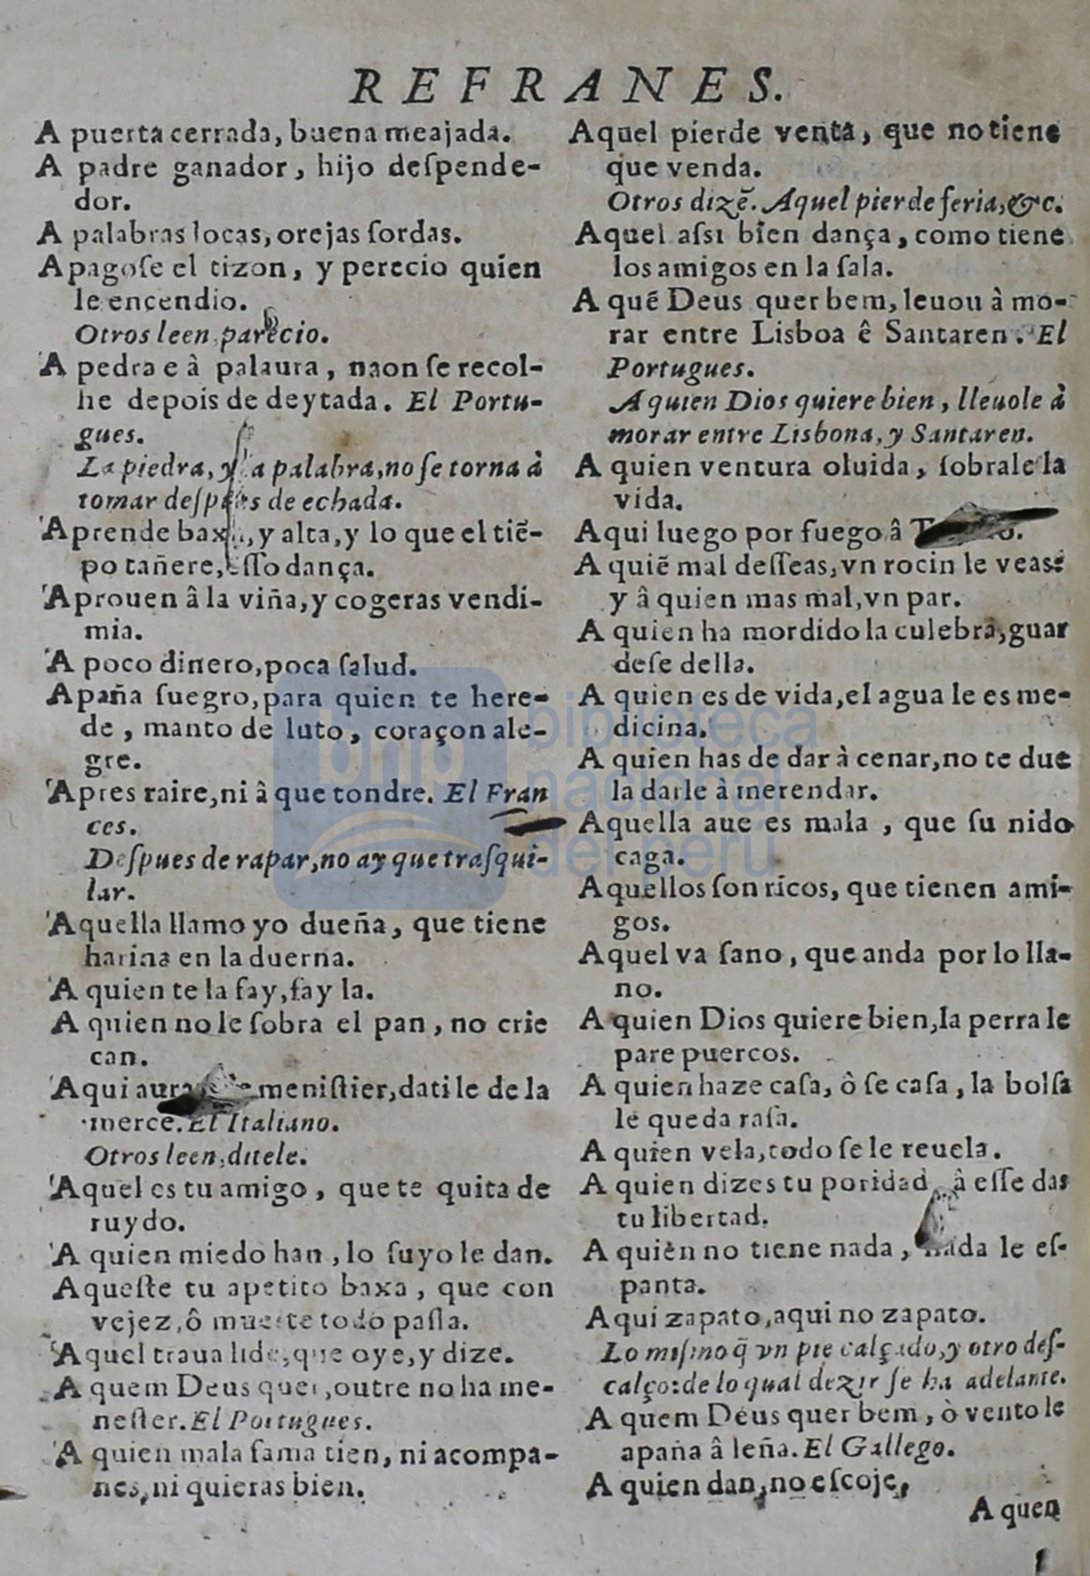 REFRANES.
A puerta cerrada, buena meajada.
A padre ganador, hijo deſpende-
dor.
A palabras locas, orejas ſordas.
Apagoſe el tizon, y perecio quien
le encendio.
Otros leen, parecio.
A pedra e à palaura, naon ſe recol-
he depois de deytada. El Portu-
gues.
La piedra, y la palabra, no ſe torna à
tomar deſpues de echada.
Aprende baxa, y alta, y lo que el tiẽ-
po tañere, eſſo dança.
Aprouen â la viña, y cogeras vendi-
mia.
A poco dinero, poca ſalud.
Apaña ſuegro, para quien te here-
de, manto de luto, coraçon ale-
gre.
Apres raire, ni â que tondre. El Fran
ces.
Deſpues de rapar, no ay que traſqui-
lar.
Aquella llamo yo dueña, que tiene
harina en la duerna.
A quien te la fay, fay la.
A quien no le ſobra el pan, no crie
can.
Aqui meniſtier, dati le de la
merce. El Italiano.
Otros leen, ditele.
Aquel es tu amigo, que te quita de
ruydo.
A quien miedo han, lo ſuyo le dan.
Aqueſte tu apetito baxa, que con
vejez, ô muerte todo paſſa.
Aquel traua lide, que oye, y dize.
A quem Deus quer, outre no ha me-
neſter. El Portugues.
A quien mala fama tien, ni acompa-
nes, ni quieras bien.
Aquel pierde venta, que no tiene
que venda.
Otros dizẽ. Aquel pierde feria, &c.
Aquel aſsi bien dança, como tiene
los amigos en la ſala.
A quẽ Deus quer bem, leuou à mo-
rar entre Lisboa ê Santaren. El
Portugues.
A quien Dios quiere bien, lleuole à
morar entre Lisbona, y Santaren.
A quien ventura oluida, ſobrale la
vida.
Aqui luego por fuego â
A quiẽ mal deſſeas, vn rocin le veas:
y â quien mas mal, vn par.
A quien ha mordido la culebra, guar
deſe della.
A quien es de vida, el agua le es me-
dicina.
A quien has de dar à cenar, no te due
la darle à merendar.
Aquella aue es mala, que ſu nido
caga.
Aquellos ſon ricos, que tienen ami-
gos.
Aquel va ſano, que anda por lo lla-
no.
A quien Dios quiere bien, la perra le
pare puercos.
A quien haze caſa, ô ſe caſa, la bolſa
le queda raſa.
A quien vela, todo ſe le reuela.
A quien dizes tu poridad, â eſſe das
tu libertad.
A quien no tiene nada, nada le eſ-
panta.
Aqui zapato, aqui no zapato.
Lo miſmo q̃ vn pie calçado, y otro deſ-
calço: de lo qual dezir ſe ha adelante.
A quem Deus quer bem, ò vento le
apaña â leña. El Gallego.
A quien dan, no eſcoje,
A quen
bnp biblioteca
nacional
del perú